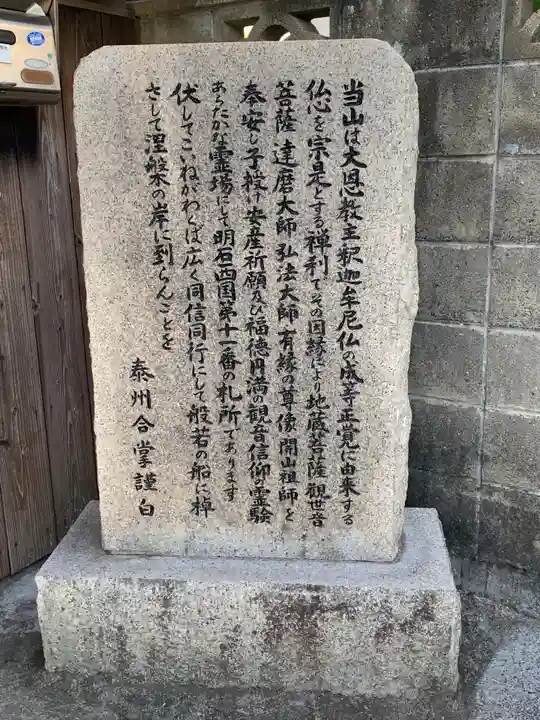 当山は大恩教主釈迦牟尼仏の成等正覚に由来する
仏心を宗是とする禅刹でその因縁により地蔵菩薩観世音
菩薩達磨大師弘法大師有縁の尊像開山祖師を
奉安し子授け安産祈願及び福徳円満の観音信仰の霊験
あらたかな霊場にして明石西国第十一番の札所であります
伏してこいねがわくば広く同信同行にして般若の船に棹
さして涅槃の岸に到らんことを
泰州合掌謹白